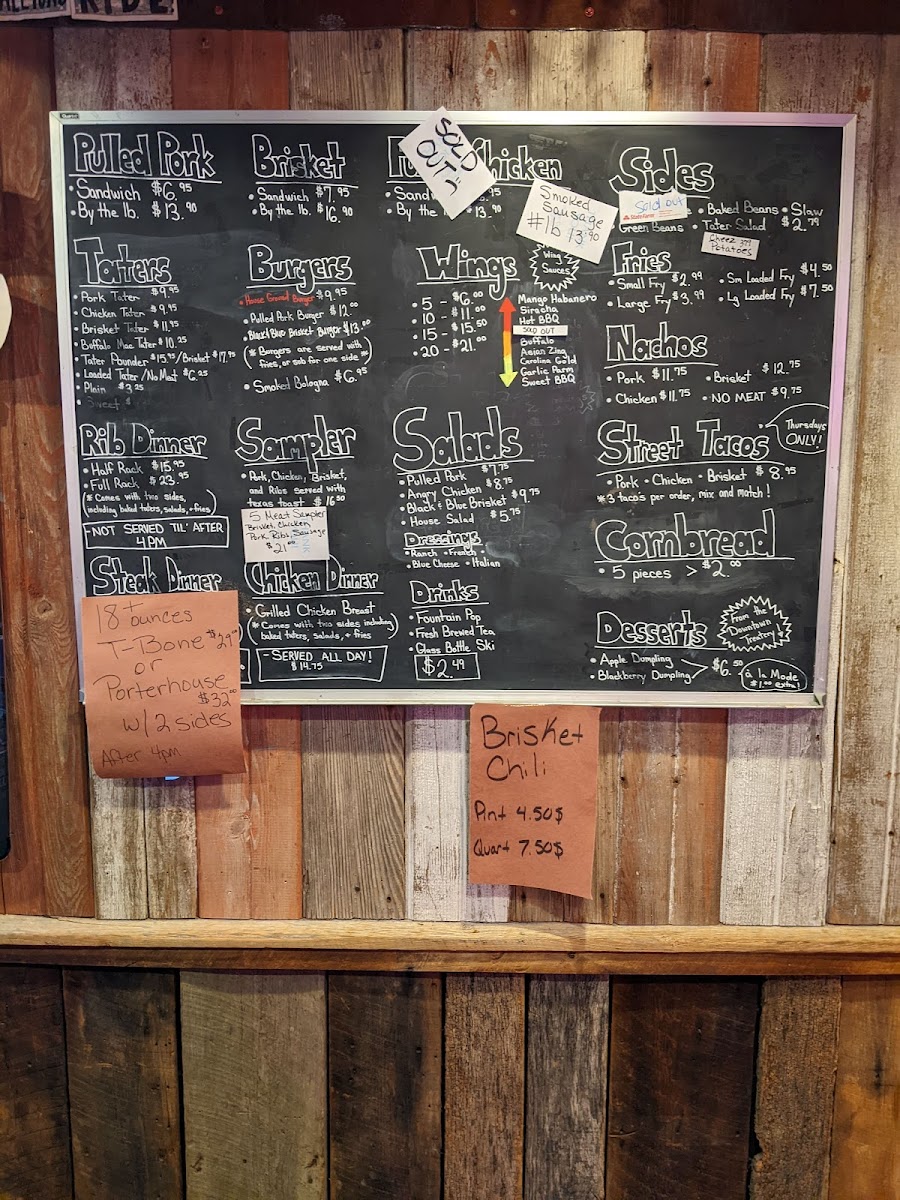 RIDE
Pulled Pork
• Sandwich $6.95
• By the lb. $13.90
Brisket
• Sandwich $7.95
• By the lb. $16.90
Chicken
SOLD
OUT
• By the 13.90
Smoked
Sausage
#1lb 13.90
Sides
Sold out
State Farm
• Baked Beans • Slaw
Green Beans • Tater Salad $2.79
Cheez 3.99
Potatoes
Taters
• Pork Tater $9.95
• Chicken Tater $9.95
• Brisket Tater $11.95
• Buffalo Mac Tater $10.25
• Tater Pounder $15.95/Brisket $17.95
• Loaded Tater/No Meat $6.25
• Plain $3.25
• Sweet $
Burgers
• House Ground Burger $9.95
• Pulled Pork Burger $12.00
• Black & Blue Brisket Burger $13.00
(* Burgers are served with
fries, or sub for one side *)
• Smoked Bologna $6.95
Wings
• 5 - $6.00
• 10 - $11.00
• 15 - $15.50
• 20 - $21.00
Wing
Sauces
Mango Habanero
Siracha
Hot BBQ
SOLD OUT
Buffalo
Asian Zing
Carolina Gold
Garlic Parm
Sweet BBQ
Fries
• Small Fry $2.99
• Large Fry $3.99
• Sm Loaded Fry $4.50
• Lg Loaded Fry $7.50
Nachos
• Pork $11.75
• Chicken $11.75
• Brisket $12.75
• NO MEAT $9.75
Rib Dinner
• Half Rack $15.95
• Full Rack $23.95
(* Comes with two sides,
including baked taters, salads, + fries)
-NOT SERVED TIL' AFTER
4PM
Sampler
• Pork, Chicken, Brisket,
and Ribs served with
texas toast $16.50
5 Meat Sampler
Brisket, Chicken,
Pork, Ribs, Sausage
$21.00
Salads
• Pulled Pork $7.75
• Angry Chicken $8.75
• Black & Blue Brisket $9.75
• House Salad $5.75
Dressings
• Ranch • French •
• Blue Cheese • Italian
Street Tacos
Thursdays
ONLY!
• Pork • Chicken • Brisket $8.95
* 3 taco's per order, mix and match!
Cornbread
• 5 pieces > $2.00
Steak Dinner
18+ ounces
T-Bone $29.00
or
Porterhouse
$32.00
w/2 sides
After 4pm
Chicken Dinner
• Grilled Chicken Breast
(* Comes with two sides including
baked taters, salads, + fries)
-SERVED ALL DAY!
$14.75
Drinks
• Fountain Pop
• Fresh Brewed Tea
• Glass Bottle Ski
$2.49
Desserts
From the
Downtown
Treatery!
• Apple Dumpling
• Blackberry Dumpling
$6.50
à la Mode
$1.00 extra!
Brisket
Chili
Pint 4.50$
Quart 7.50$